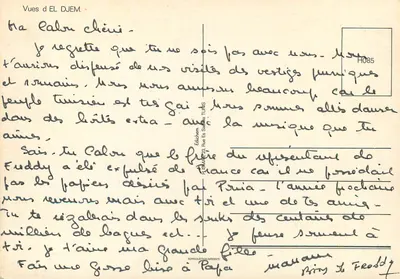 Vues d EL DJEM
H085
Ma Calou chérie -
Je regrette que tu ne sois pas avec nous - Nous
t'aurions dispensé de nos visites des vestiges puniques
et romains. Nous nous amusons beaucoup car le
peuple tunisien est très gai. Nous sommes allés danser
dans des hôtels extra - avec la musique que tu
aimes.
Sais-tu Calou que le frère du représentant de
Freddy a été expulsé de France car il ne possédait
pas les papiers désirés par Paris - L'année prochaine
nous revenons mais avec toi et une de tes amies -
Tu te régalerais dans les souks des centaines de
milliers de bagues est... Je pense souvent à
toi. Je t'aime ma grande fille - maman
Fais une grosse bise à Papa Bises Freddy